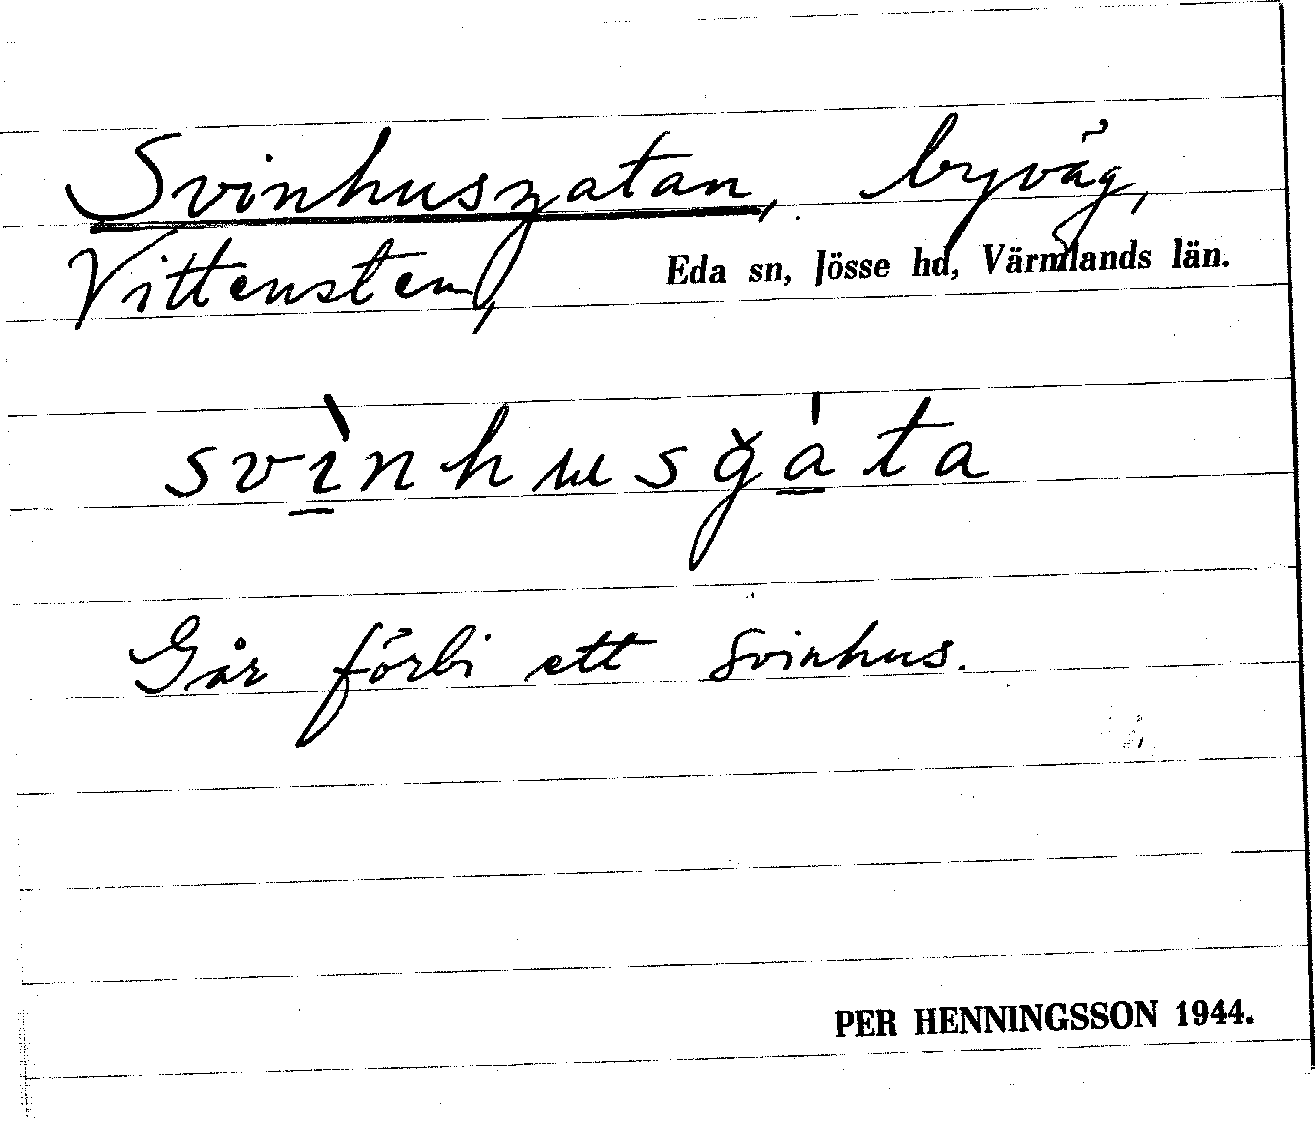 Svinhusgatan, byväg,
Vittensten, Eda sn, Jösse hd, Värmlands län.
svı̱̀nhɯsğa̱̍ta
Går förbi ett svinhus.
PER HENNINGSSON 1944.